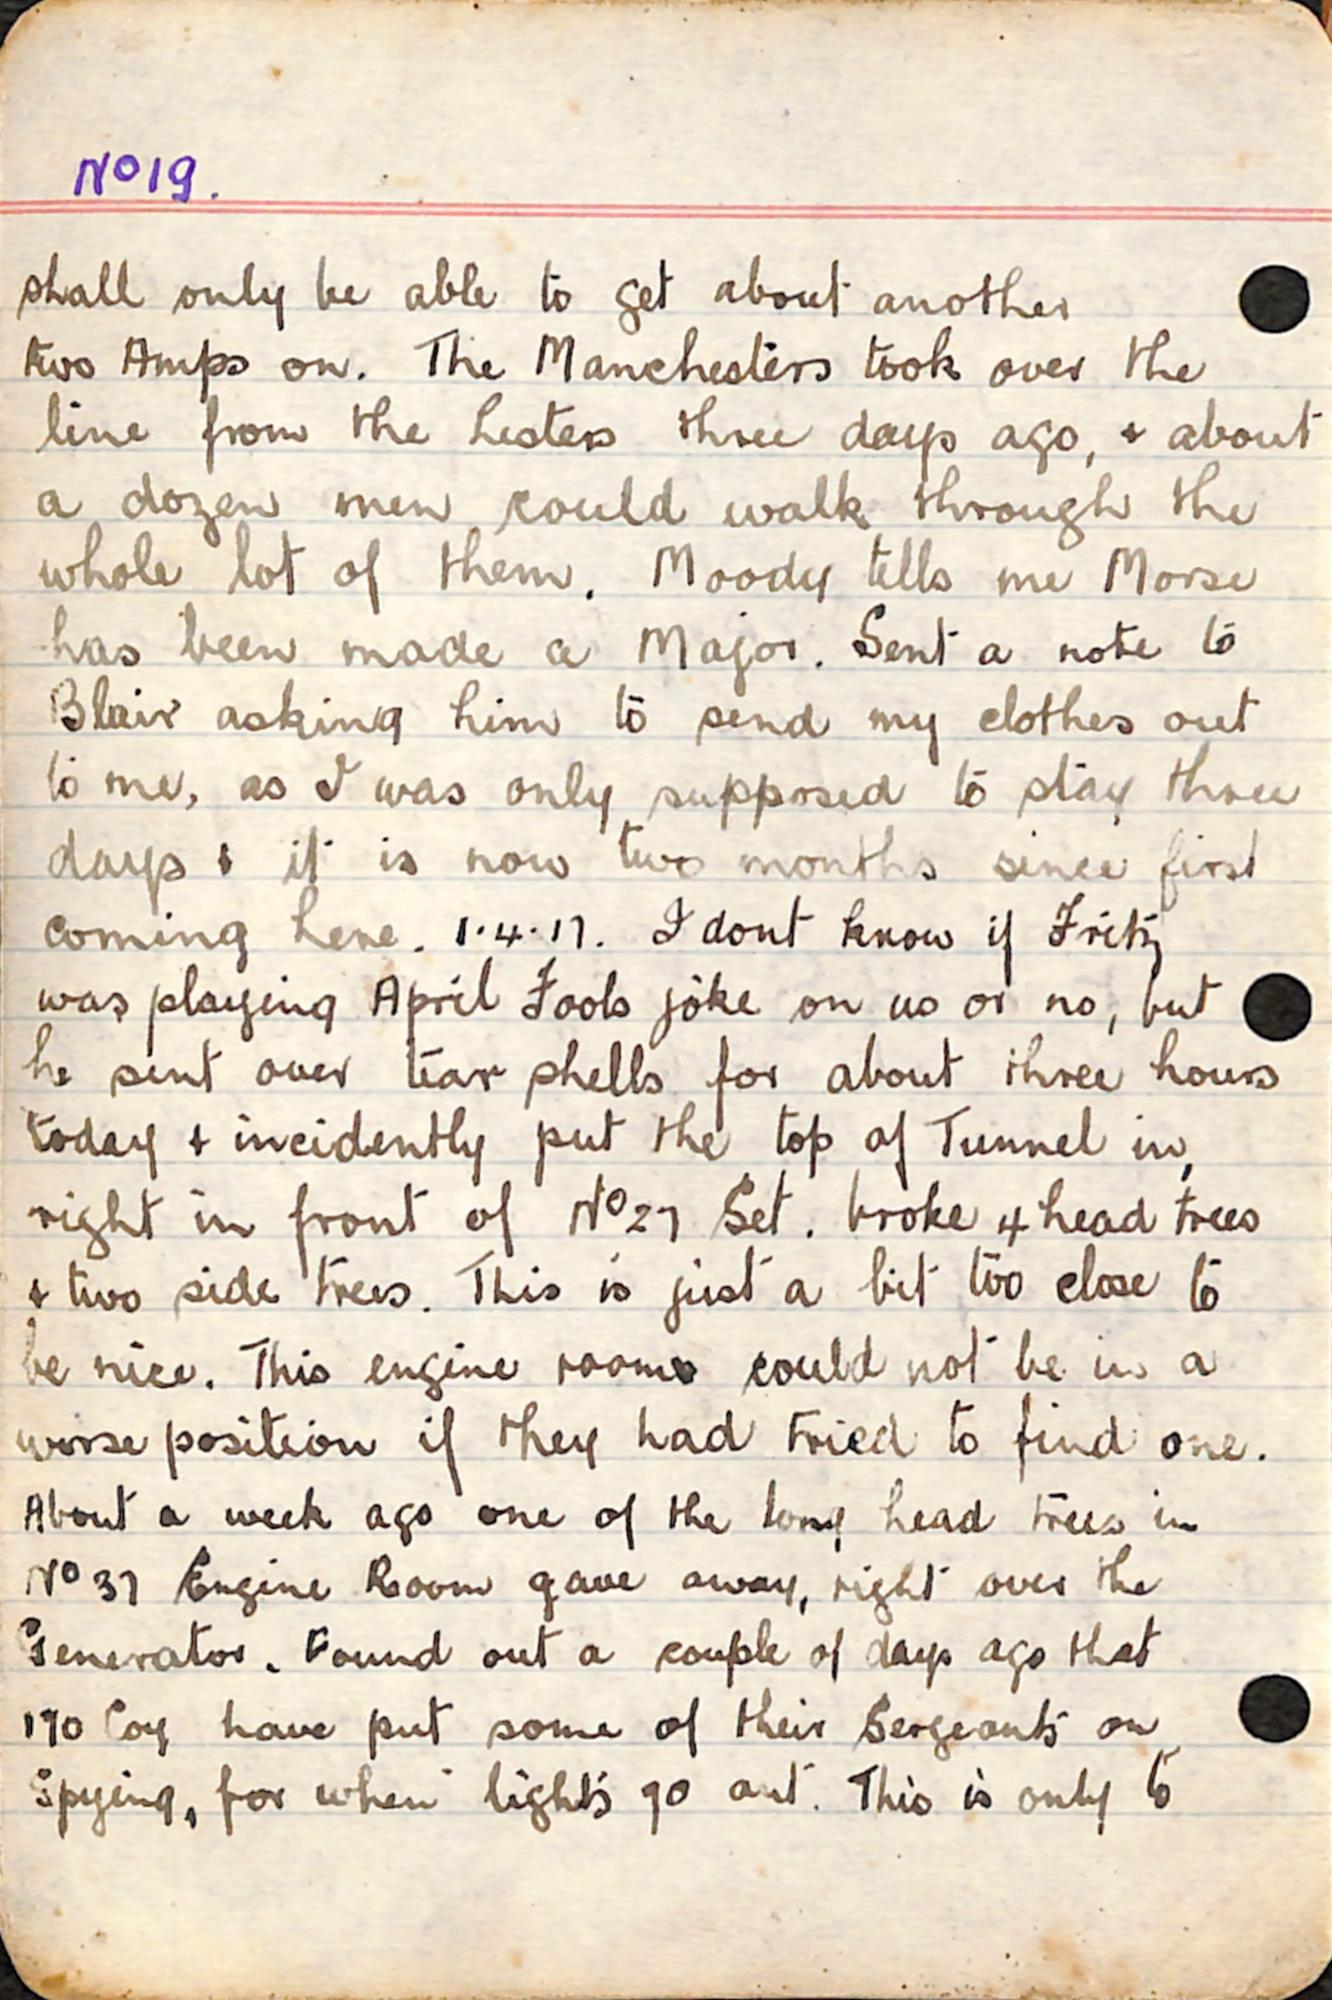 No 19.
shall only be able to get about another
two Amps on. The Manchesters took over the
line from the Lesters three days ago, & about
a dozen men could walk through the
whole lot of them. Moody tells me Morse
has been made a Major. Sent a note to
Blair asking him to send my clothes out
to me, as I was only supposed to stay three
days & it is now two months since first
coming here. 1.4.17. I dont know if Fritz
was playing April Fools joke on us or no, but
he sent over tear shells for about three hours
today & incidently put the top of Tunnel in,
right in front of No 27 Set. broke 4 head trees
& two side trees. This is just a bit too close to
be nice. This engine room could not be in a
worse position if they had tried to find one.
About a week ago one of the long head trees in
No 37 Engine Room gave away, right over the
Generator. Found out a couple of days ago that
170 Coy have put some of their Sergeants on
Spying, for when lights go out. This is only to